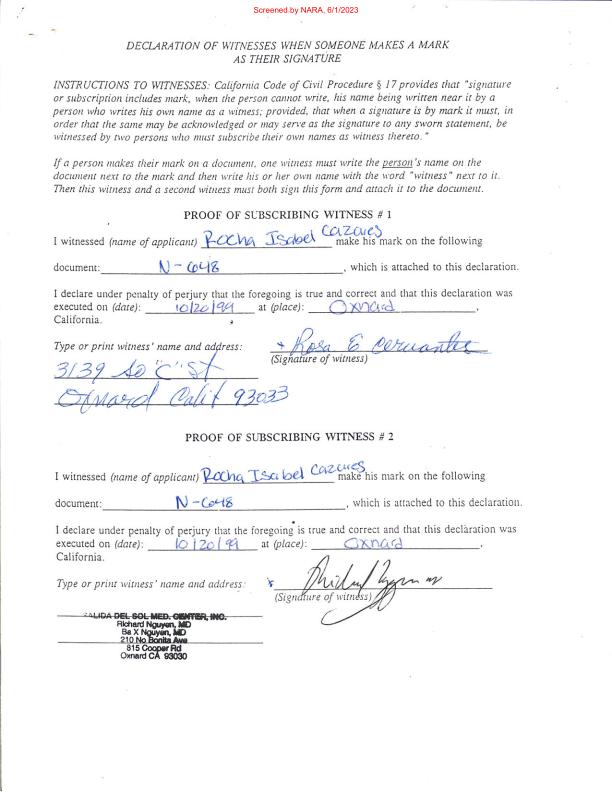 Screened by NARA, 6/1/2023
DECLARATION OF WITNESSES WHEN SOMEONE MAKES A MARK
AS THEIR SIGNATURE
INSTRUCTIONS TO WITNESSES: California Code of Civil Procedure § 17 provides that "signature
or subscription includes mark, when the person cannot write, his name being written near it by a
person who writes his own name as a witness; provided, that when a signature is by mark it must, in
order that the same may be acknowledged or may serve as the signature to any sworn statement, be
witnessed by two persons who must subscribe their own names as witness thereto."
If a person makes their mark on a document, one witness must write the person's name on the
document next to the mark and then write his or her own name with the word "witness" next to it.
Then this witness and a second witness must both sign this form and attach it to the document.
PROOF OF SUBSCRIBING WITNESS # 1
I witnessed (name of applicant) Rocha Isabel Cazares make his mark on the following
document: N-648, which is attached to this declaration.
I declare under penalty of perjury that the foregoing is true and correct and that this declaration was
executed on (date): 10/20/99 at (place): Oxnard,
California.
Type or print witness' name and address: Rosa E Cervantes
(Signature of witness)
3139 So "C" St
Oxnard Calif 93033
PROOF OF SUBSCRIBING WITNESS # 2
I witnessed (name of applicant) Rocha Isabel Cazares make his mark on the following
document: N-648, which is attached to this declaration.
I declare under penalty of perjury that the foregoing is true and correct and that this declaration was
executed on (date): 10/20/99 at (place): Oxnard,
California.
Type or print witness' name and address:
(Signature of witness)
DEL SOL MED. CENTER, INC.
Richard Nguyen, MD
Ba X Nguyen, MD
210 No Bonita Ave
815 Cooper Rd
Oxnard CA 93030